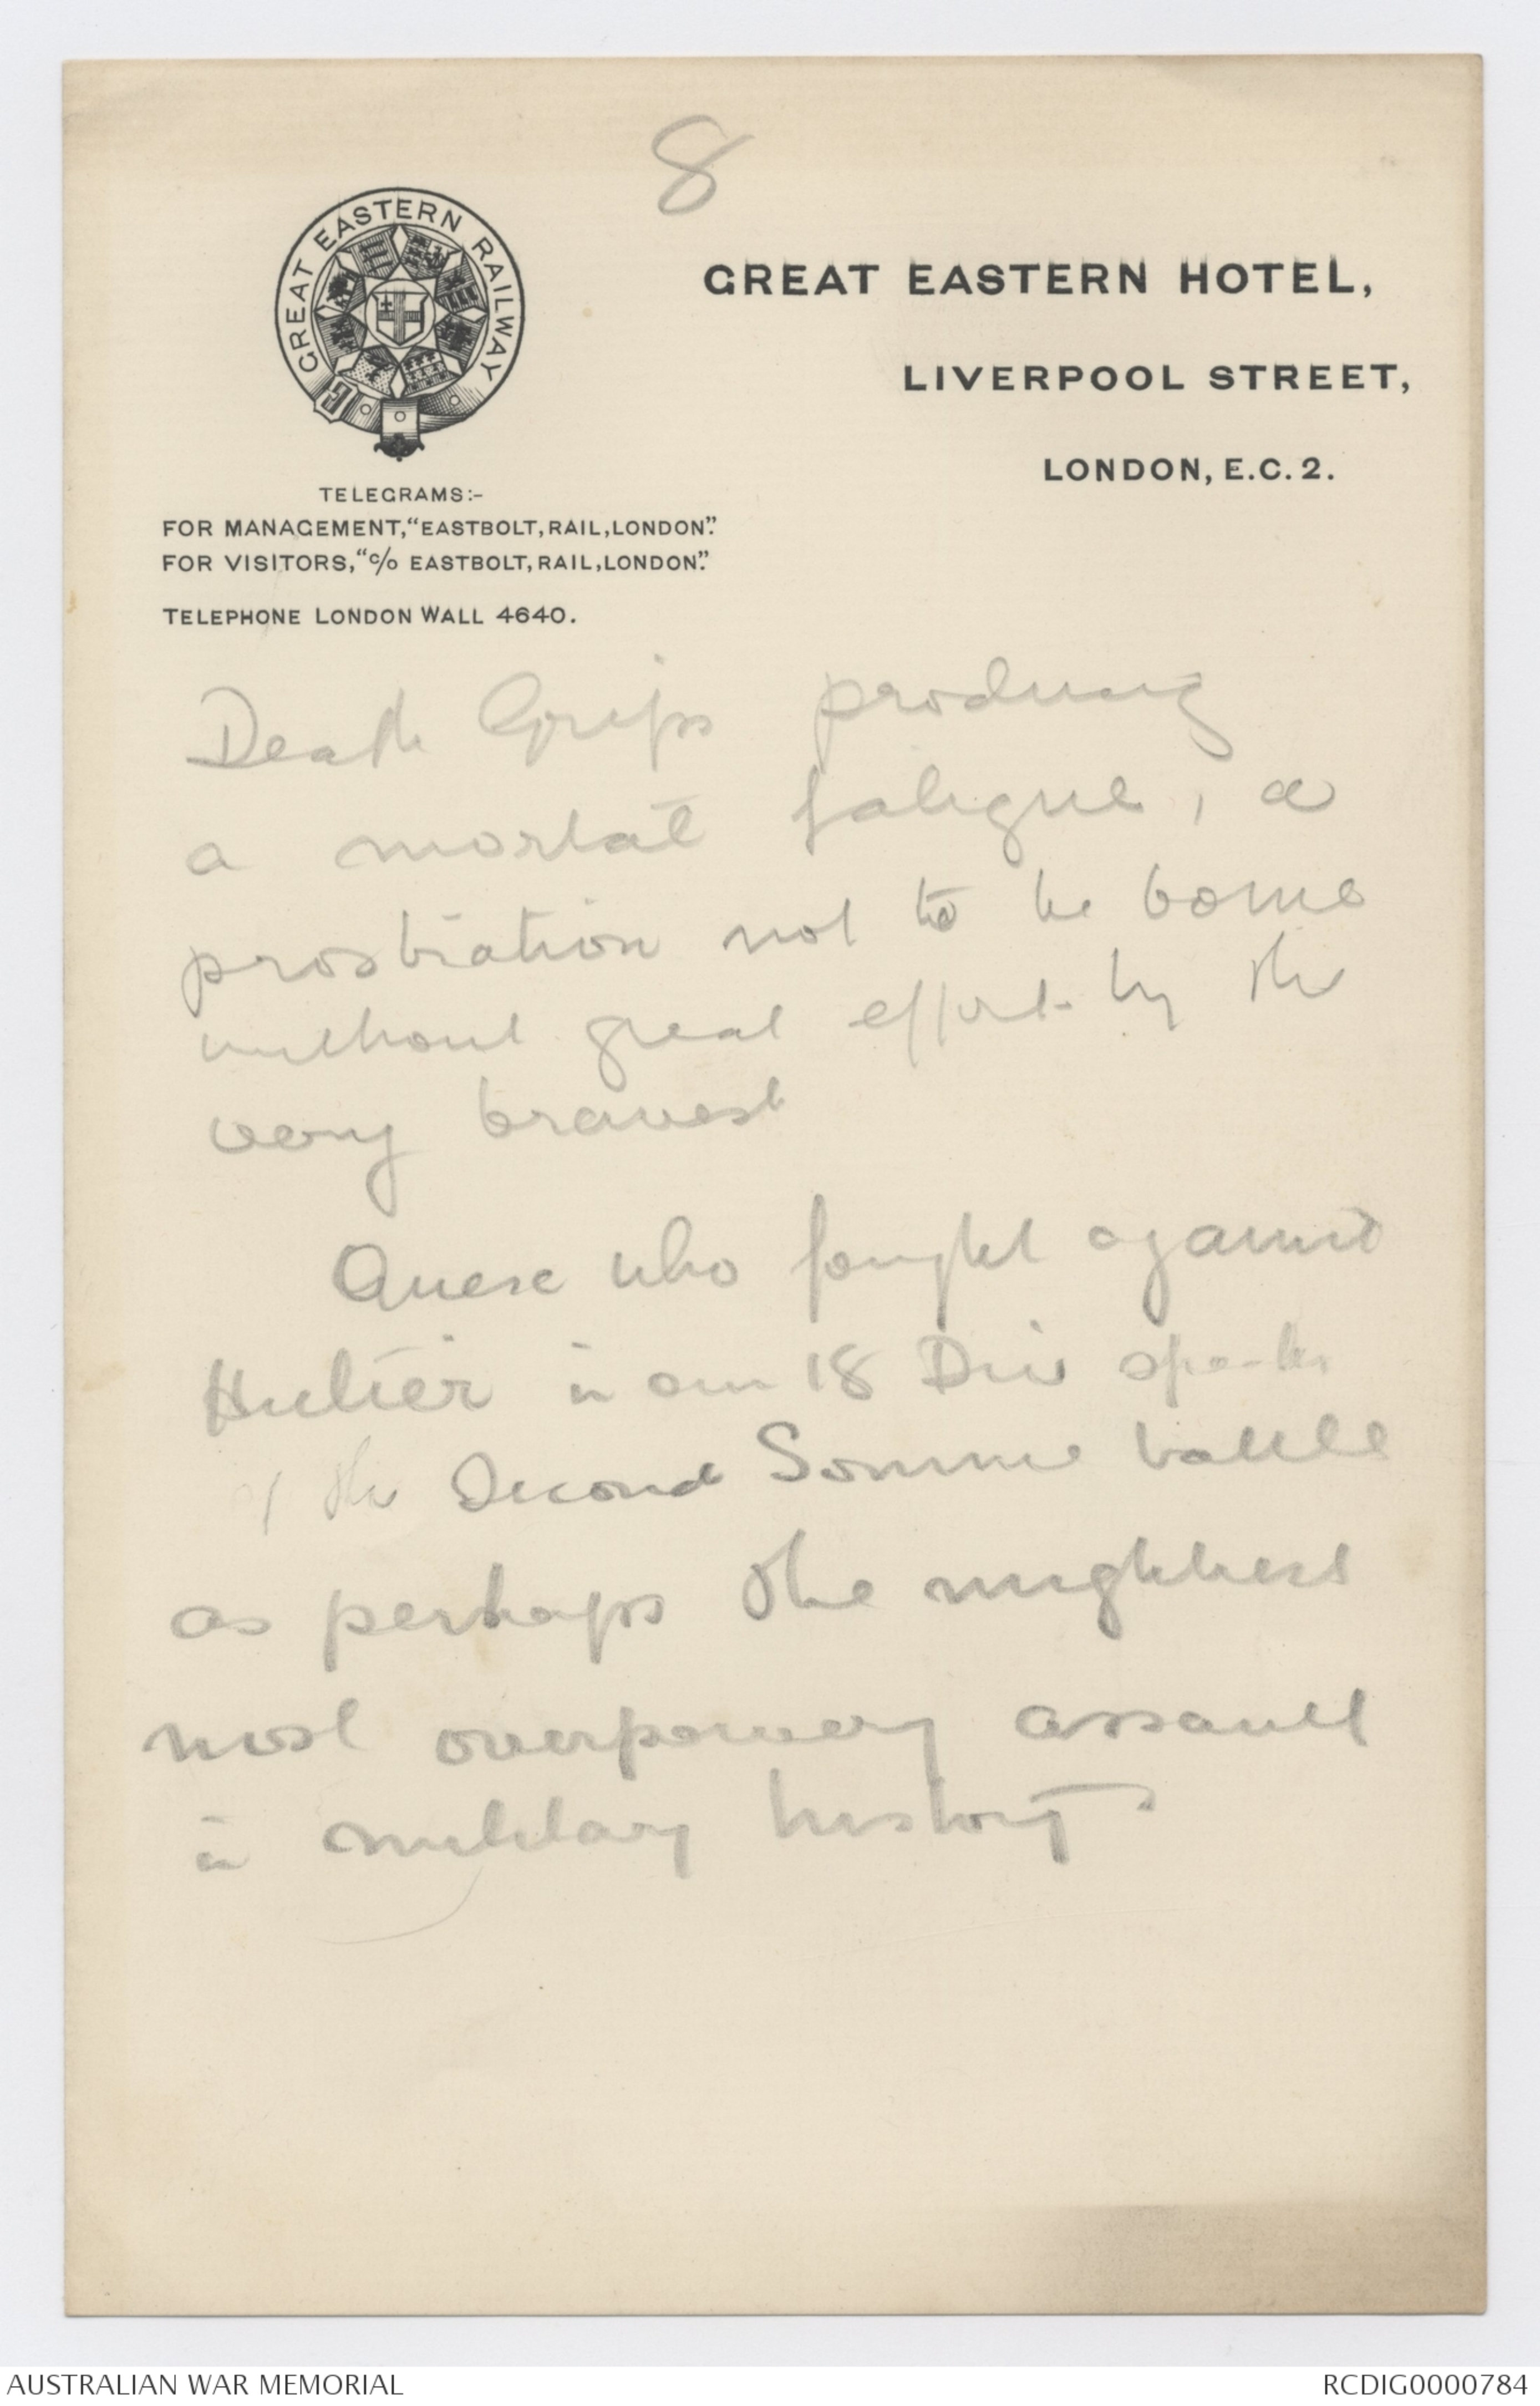 8
GREAT EASTERN RAILWAY
GREAT EASTERN HOTEL,
LIVERPOOL STREET,
LONDON, E.C. 2.
TELEGRAMS:-
FOR MANAGEMENT, "EASTBOLT, RAIL, LONDON".
FOR VISITORS, "c/o EASTBOLT, RAIL, LONDON".
TELEPHONE LONDON WALL 4640.
Death Grips producing
a mortal fatigue, a
prostration not to be borne
without great effort by the
very bravest
who fought against
Hutier in our 18 Div speaks
of the Second Somme battle
as perhaps the mightiest
most overpowering assault
in military history
AUSTRALIAN WAR MEMORIAL
RCDIG0000784